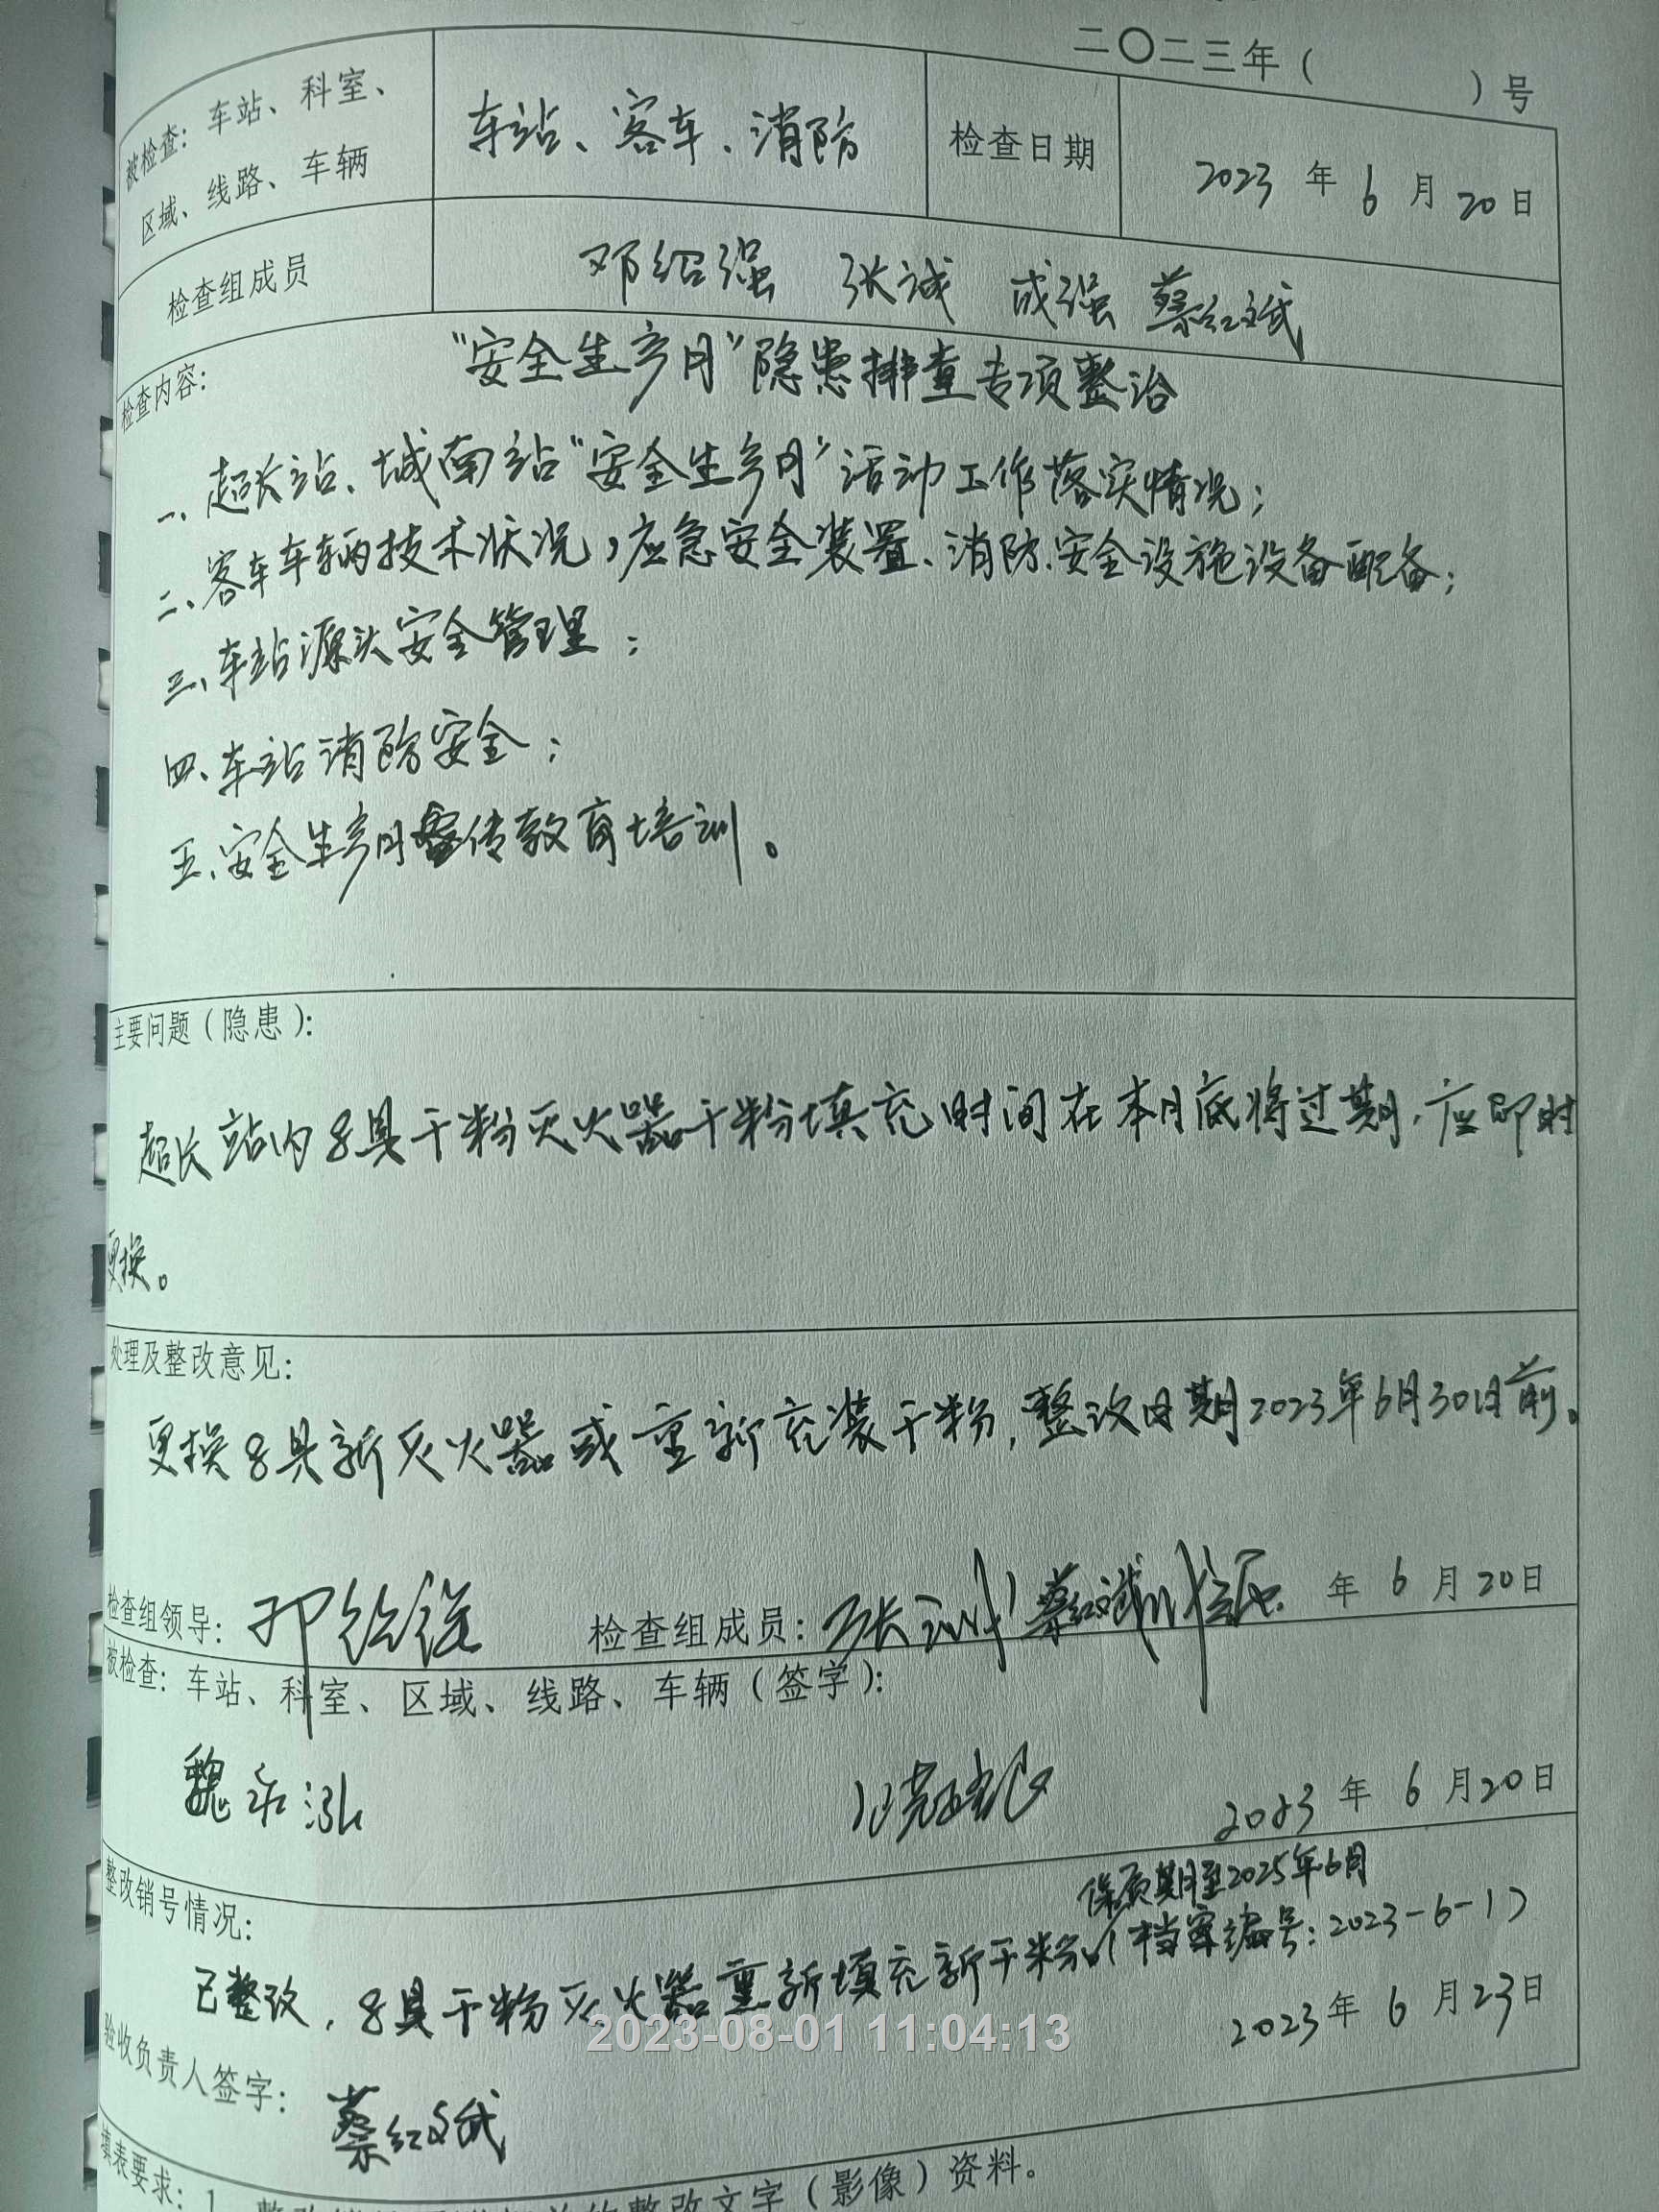 二〇二三年（ ）号
被检查：车站、科室、
区域、线路、车辆
车站、客车、消防
检查日期
2023 年 6 月 20 日
检查组成员
邓绍强 张诚 成强 蔡红斌
检查内容：
“安全生产月”隐患排查专项整治
一、超长站、城南站“安全生产月”活动工作落实情况；
二、客车车辆技术状况，应急安全装置、消防、安全设施设备配备；
三、车站源头安全管理；
四、车站消防安全；
五、安全生产月宣传教育培训。
主要问题（隐患）：
超长站内8具干粉灭火器干粉填充时间在本月底将过期，应即时
更换。
处理及整改意见：
更换8具新灭火器或重新充装干粉，整改日期2023年6月30日前。
检查组领导：邓绍强 检查组成员：张诚 蔡红斌 年 6 月 20 日
被检查：车站、科室、区域、线路、车辆（签字）：
魏 泓
2023 年 6 月 20 日
整改销号情况：
保质期至2025年6月
已整改，8具干粉灭火器重新填充新干粉 档案编号：2023-6-17
2023年 6 月 23 日
2023-08-01 11:04:13
验收负责人签字：
蔡红斌
填表要求：1、整改 整改文字（影像）资料。